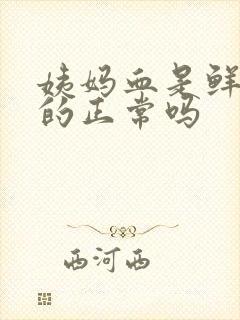 姨妈血是鲜
的正常吗
西河西